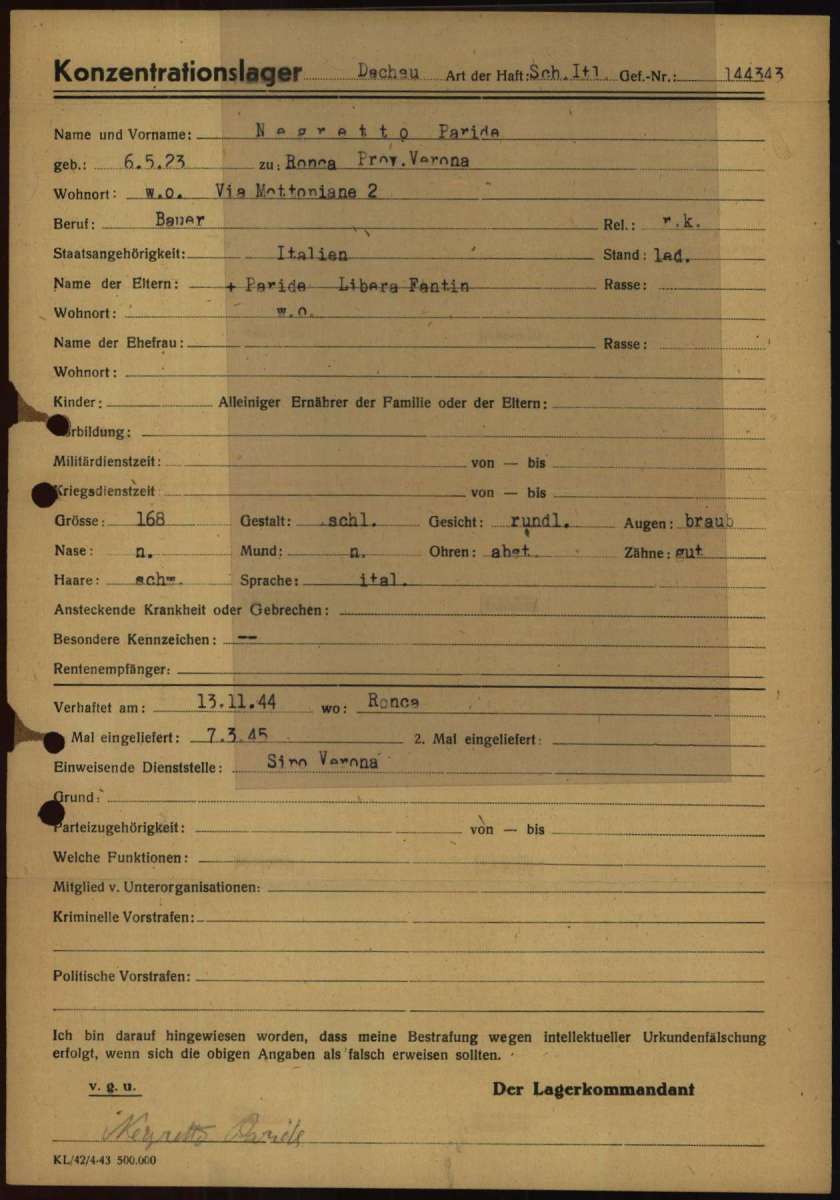 Konzentrationslager Dachau Art der Haft: Sch. Itl. Gef.-Nr.: 144343
Name und Vorname: Negretto Paride
geb.: 6.5.23 zu: Ronca Prov. Verona
Wohnort: w.o. Via Mottoniane 2
Beruf: Bauer Rel.: r.k.
Staatsangehörigkeit: Italien Stand: led.
Name der Eltern: + Paride Libera Fantin Rasse:
Wohnort: w.o.
Name der Ehefrau: Rasse:
Wohnort:
Kinder: Alleiniger Ernährer der Familie oder der Eltern:
orbildung:
Militärdienstzeit: von — bis
Kriegsdienstzeit von — bis
Grösse: 168 Gestalt: schl. Gesicht: rundl. Augen: braub
Nase: n. Mund: n. Ohren: abst. Zähne: gut
Haare: schw. Sprache: ital.
Ansteckende Krankheit oder Gebrechen:
Besondere Kennzeichen: --
Rentenempfänger:
Verhaftet am: 13.11.44 wo: Ronca
Mal eingeliefert: 7.3.45 2. Mal eingeliefert:
Einweisende Dienststelle: Sipo Verona
Grund:
Parteizugehörigkeit: von — bis
Welche Funktionen:
Mitglied v. Unterorganisationen:
Kriminelle Vorstrafen:
Politische Vorstrafen:
Ich bin darauf hingewiesen worden, dass meine Bestrafung wegen intellektueller Urkundenfälschung
erfolgt, wenn sich die obigen Angaben als falsch erweisen sollten.
v. g. u. Der Lagerkommandant
Negretto Paride
KL/42/4-43 500.000